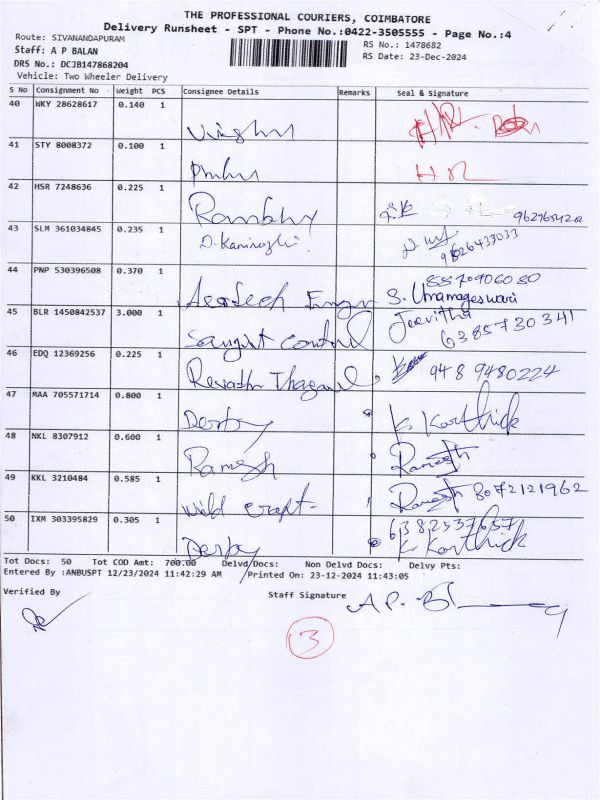 THE PROFESSIONAL COURIERS, COIMBATORE
Delivery Runsheet - SPT - Phone No.:0422-3505555 - Page No.:4
Route: SIVANANDAPURAM
RS No.: 1478682
Staff: A P BALAN
RS Date: 23-Dec-2024
DRS No.: DCJB147868204
Vehicle: Two Wheeler Delivery
S No Consignment No Weight PCS Consignee Details Remarks Seal & Signature
40 WKY 28628617 0.140 1
41 STY 8008372 0.100 1
H R
42 HSR 7248636 0.225 1
43 SLM 361034845 0.235 1
44 PNP 530396508 0.370 1
S. Umamageswari
45 BLR 1450842537 3.000 1
Jeevitha
6385730341
46 EDQ 12369256 0.225 1
9489480224
47 MAA 705571714 0.800 1
Derby K. Karthick
48 NKL 8307912 0.600 1
Ramesh Ramesh
49 KKL 3210484 0.585 1
Wild craft Ramesh 8072121962
50 IXM 303395829 0.305 1
6382537657
Derby K. Karthick
Tot Docs: 50 Tot COD Amt: 700.00 Delvd Docs: Non Delvd Docs: Delvy Pts:
Entered By :ANBUSPT 12/23/2024 11:42:29 AM Printed On: 23-12-2024 11:43:05
Verified By Staff Signature
A P. B
3